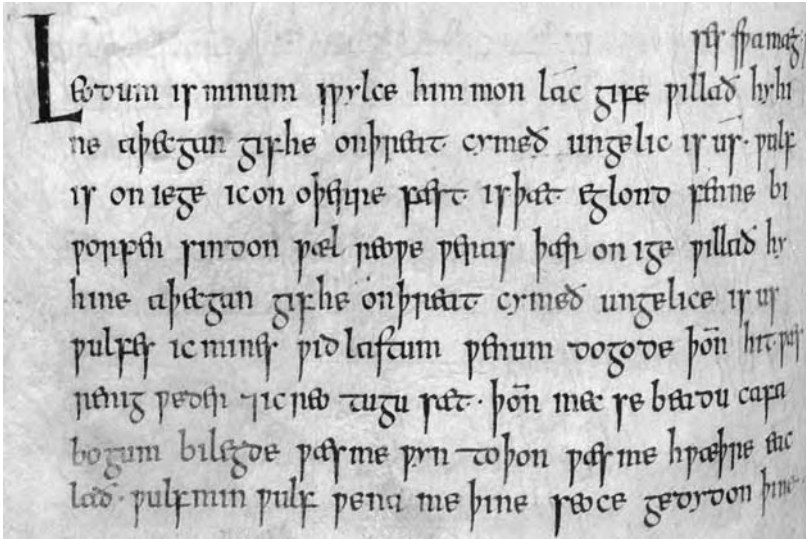 ses sƿa mæg
Leodum is minum sƿylce him mon lac gife ƿillað hy hi
ne aþecgan gif he onþreat cymeð ungelic is us· ƿulf
is on iege ic on oþerre fæst· is þæt eglond fenne bi
ƿorpen sindon ƿæl reoƿe ƿeras þær on ige ƿillað hy
hine aþecgan gif he onþreat cymeð ungelice is us
ƿulfes ic mines ƿid lastum ƿenum dogode þoñ hit ƿæs
renig ƿeder ⁊ic reo tugu sæt· þoñ mec se beadu cafa
bogum bilegde ƿæs me ƿyn to þon ƿæs me hƿæþre eac
lað· ƿulf min ƿulf ƿena me þine seoce gedydon þine